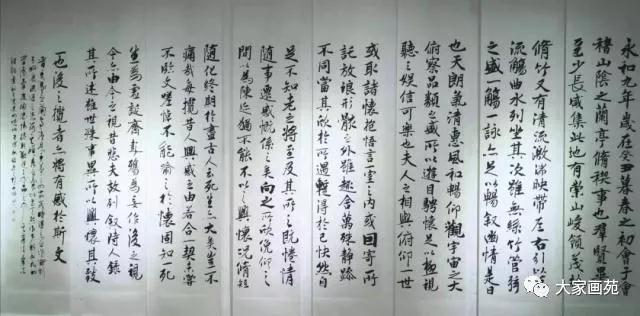 永和九年歲在癸丑暮春之初會于會
稽山陰之蘭亭脩稧事也群賢畢
至少長咸集此地有崇山峻領茂林
脩竹又有清流激湍映帶左右引以為
流觴曲水列坐其次雖無絲竹管弦
之盛一觴一詠亦足以暢敘幽情是日
也天朗氣清惠風和暢仰觀宇宙之大
俯察品類之盛所以遊目騁懷足以極視
聽之娛信可樂也夫人之相與俯仰一世
或取諸懷抱悟言一室之內或因寄所
託放浪形骸之外雖趣舍萬殊靜躁
不同當其欣於所遇蹔得於己快然自
足不知老之將至及其所之既惓情
隨事遷感慨係之矣向之所欣俛仰之
間以為陳迹猶不能不以之興懷況脩短
隨化終期於盡古人云死生亦大矣豈不
痛哉每攬昔人興感之由若合一契未嘗
不臨文嗟悼不能喻之於懷固知死
生為虛誕齊彭殤為妄作後之視
今亦由今之視昔悲夫故列敘時人錄
其所述雖世殊事異所以興懷其致
一也後之攬者亦將有感於斯文
大家画苑